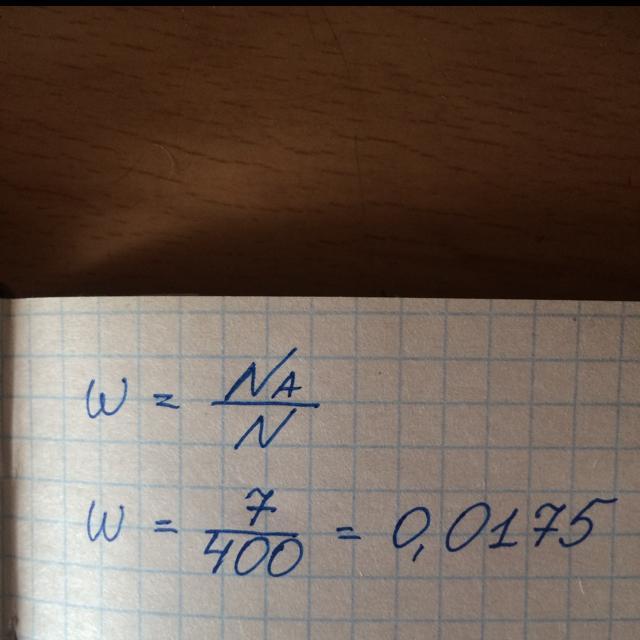 W = NA/N
W = 7/400 = 0,0175